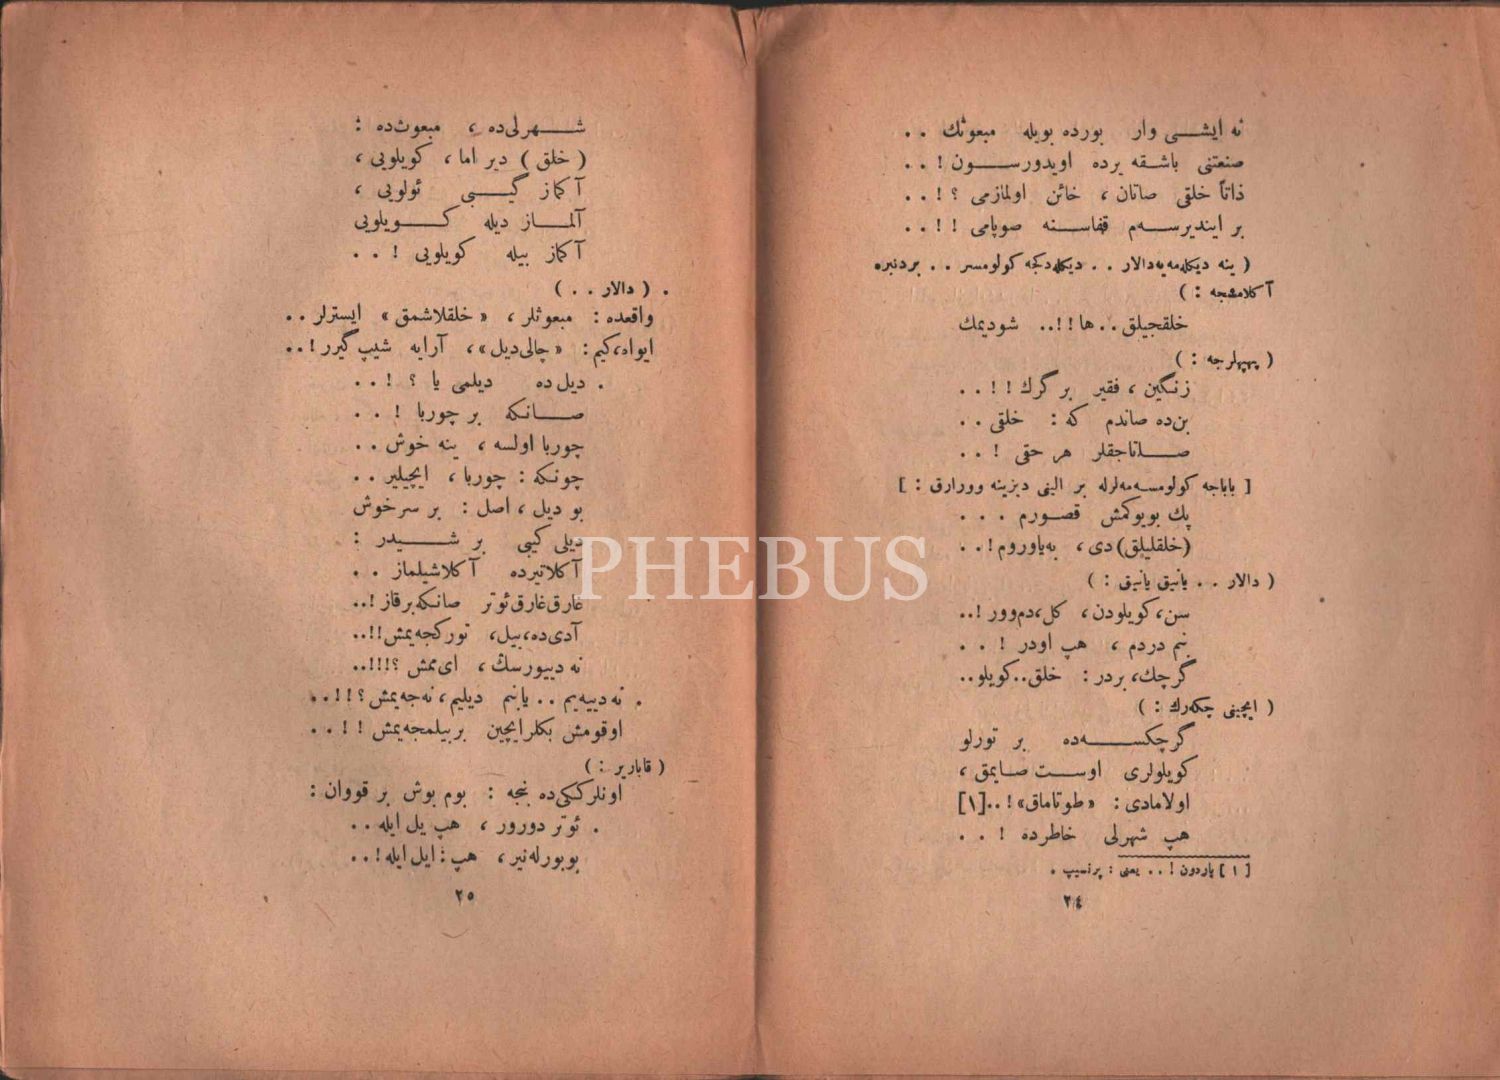 نه ایشی وار بورده بویله مبعوثك . .
صنعتنی باشقه یرده اویدورسون ! . .
ذاتاً خلقی صاتان ، خائن اولمازمی ؟ ! . .
بر ایندیرسه‌م قفاسنه صوپامی ! ! . .
( ینه دیکله‌مه‌یه‌دالار . . دیکله‌دکجه کولومسر . . بردنبره
آکلامشجه : )
خلقجیلق . . ها ! ! . . شودیمك
( پهپهلرجه : )
زنگین ، فقیر بر گرك ! ! . .
بن‌ده صاندم که : خلقی . .
صاتاجقلر هر حقی ! . .
[ باباجه کولومسه‌مه‌لرله بر الینی دیزینه وورارق : ]
پك بویوکمش قصورم . . .
(خلقلیلق) دی ، به‌یاوروم ! . .
( دالار . . یانیق یانیق : )
سن ، کویلودن ، کل ، دم‌وور ! . .
بنم دردم ، هپ اودر ! . .
گرچك ، بردر : خلق . . کویلو . .
( ایچینی چکه‌رك : )
گرچکسه‌ده بر تورلو
کویلولری اوست صایمق ،
اولامادی : « طوتاماق » ! . . [١]
هپ شهرلی خاطرده ! . .
[ ١ ] پاردون ! . . یعنی : پرنسیپ .
٢٤
شهرلی‌ده ، مبعوث‌ده :
( خلق ) دیر اما ، کویلویی ،
آکماز گیبی ئولویی ،
آلماز دیله کویلویی
آکماز بیله کویلویی ! . .
. ( دالار . . )
واقعده : مبعوثلر ، « خلقلاشمق » ایسترلر . .
ایواه ، کیم : « چالی‌دیل » ، آرایه شیپ گیرر ! . .
. دیل‌ده دیلمی یا ؟ ! . .
صانکه بر چوربا ! . .
چوربا اولسه ، ینه خوش . .
چونکه : چوربا ، ایچیلیر . .
بو دیل ، اصل : بر سرخوش
دیلی کیبی بر شیدر :
آکلاتیرده آکلاشیلماز . .
غارق غارق ئوتر صانکه برقاز ! . .
آدی‌ده ، بیل ، تورکجه‌یمش ! ! . .
نه دییورسك ، ای‌ممش ؟ ! ! ! . .
. نه‌دییه‌یم . . یابنم دیلیم ، نه‌جه‌یمش ؟ ! ! . .
اوقومش بکلرایچین بربیلمجه‌یمش ! ! . .
( قاباریر : )
اونلرککی‌ده بنجه : بوم بوش بر قووان :
. ئوتر دورور ، هپ یل ایله . .
بوبورله‌نیر ، هپ : ایل ایله ! . .
٢٥
PHEBUS